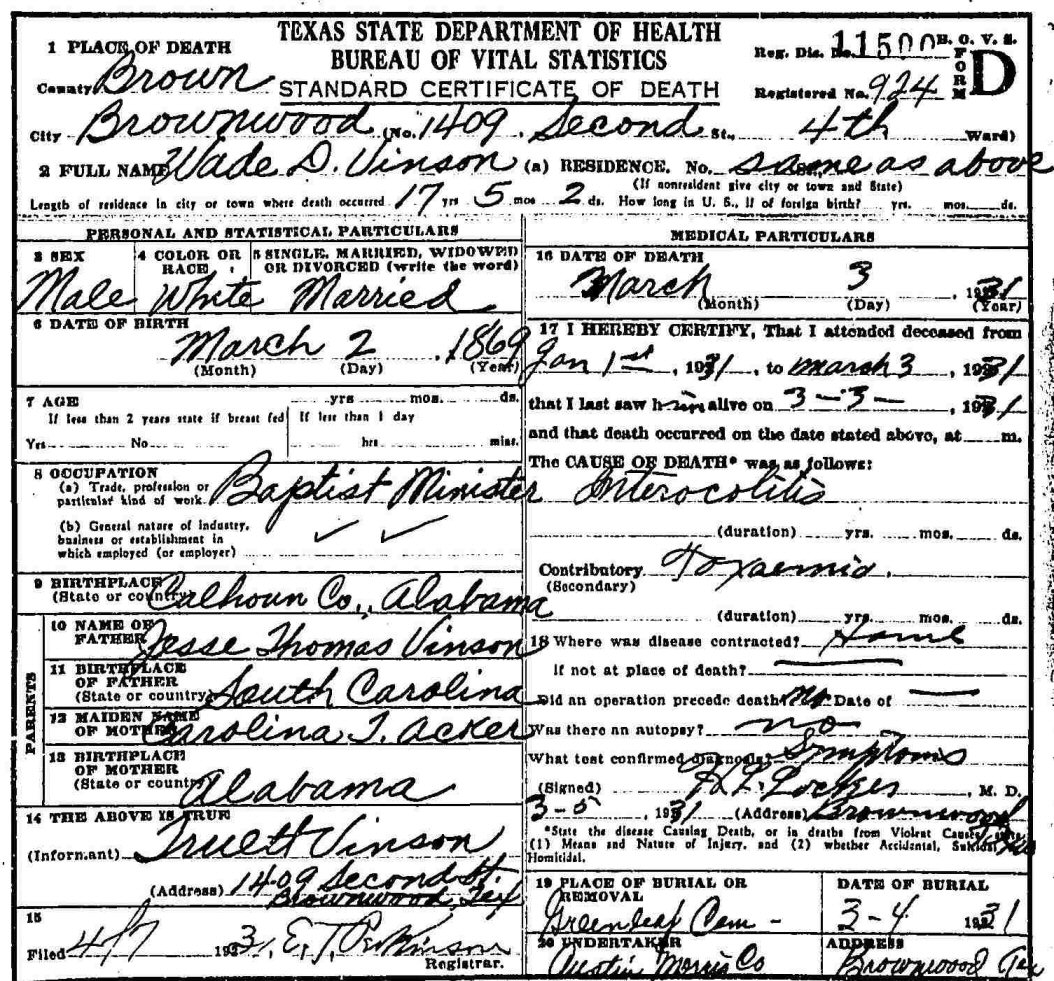 TEXAS STATE DEPARTMENT OF HEALTH
BUREAU OF VITAL STATISTICS
STANDARD CERTIFICATE OF DEATH
Reg. Dis. No. 11500 B. O. V. S.
Registered No. 924 FORM D
1 PLACE OF DEATH
County Brown
City Brownwood (No. 1409. Second St., 4th Ward)
2 FULL NAME Wade D. Vinson (a) RESIDENCE. No. same as above St.
(If nonresident give city or town and State)
Length of residence in city or town where death occurred 17 yrs 5 mos 2 ds. How long in U. S., if of foreign birth? yrs. mos. ds.
PERSONAL AND STATISTICAL PARTICULARS
3 SEX
Male
4 COLOR OR RACE
White
5 SINGLE, MARRIED, WIDOWED OR DIVORCED (write the word)
Married
6 DATE OF BIRTH
March 2 , 1869
(Month) (Day) (Year)
7 AGE yrs mos. ds.
If less than 2 years state if breast fed If less than 1 day
Yes No hrs mins.
8 OCCUPATION
(a) Trade, profession or
particular kind of work Baptist Minister
(b) General nature of industry,
business or establishment in
which employed (or employer)
9 BIRTHPLACE
(State or country) Calhoun Co., Alabama
PARENTS
10 NAME OF
FATHER Jesse Thomas Vinson
11 BIRTHPLACE
OF FATHER
(State or country) South Carolina
12 MAIDEN NAME
OF MOTHER Carolina T. Acker
13 BIRTHPLACE
OF MOTHER
(State or country) Alabama
14 THE ABOVE IS TRUE
(Informant) Truett Vinson
(Address) 1409 Second St.
Brownwood, Tex
15
Filed 4/7 1931, E. T. Perkinson
Registrar.
MEDICAL PARTICULARS
16 DATE OF DEATH
March 3 , 1931
(Month) (Day) (Year)
17 I HEREBY CERTIFY, That I attended deceased from
Jan 1st, 1931, to March 3, 1931
that I last saw him alive on 3-3-, 1931
and that death occurred on the date stated above, at m.
The CAUSE OF DEATH* was as follows:
Enterocolitis
(duration) yrs. mos. ds.
Contributory Toxaemia.
(Secondary)
(duration) yrs. mos. ds.
18 Where was disease contracted? Home
if not at place of death?
Did an operation precede death? no Date of
Was there an autopsy? no
What test confirmed diagnosis? Symptoms
(Signed) H. L. Locker, M. D.
3-5, 1931 (Address) Brownwood Texas
*State the disease Causing Death, or in deaths from Violent Causes, state
(1) Means and Nature of Injury, and (2) whether Accidental, Suicidal,
Homicidal.
19 PLACE OF BURIAL OR
REMOVAL
Greenleaf Cem -
DATE OF BURIAL
3-4 1931
20 UNDERTAKER
Austin Morris Co
ADDRESS
Brownwood Tex